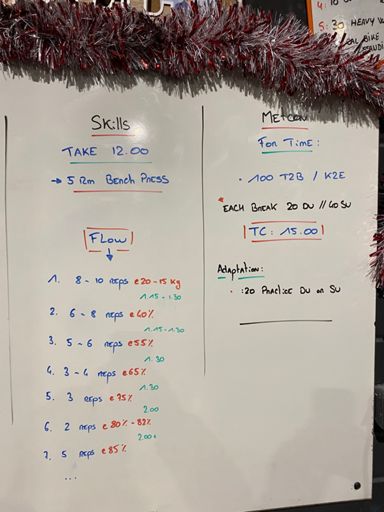 4. 10
5. 30 HEAVY
BIKE
Skills
TAKE 12.00
→ 5 RM BENCH PRESS
FLOW
1. 8 - 10 REPS @ 20 - 15 Kg
1.15 - 1.30
2. 6 - 8 REPS @ 40%
1.15 - 1.30
3. 5 - 6 REPS @ 55%
1.30
4. 3 - 4 REPS @ 65%
1.30
5. 3 REPS @ 75%
2.00
6. 2 REPS @ 80% - 82%
2.00+
7. 5 REPS @ 85%
...
METCON
FOR TIME:
· 100 T2B / K2E
*EACH BREAK 20 DU // 40 SU
TC: 15.00
Adaptation:
· :20 PRACTICE DU OR SU